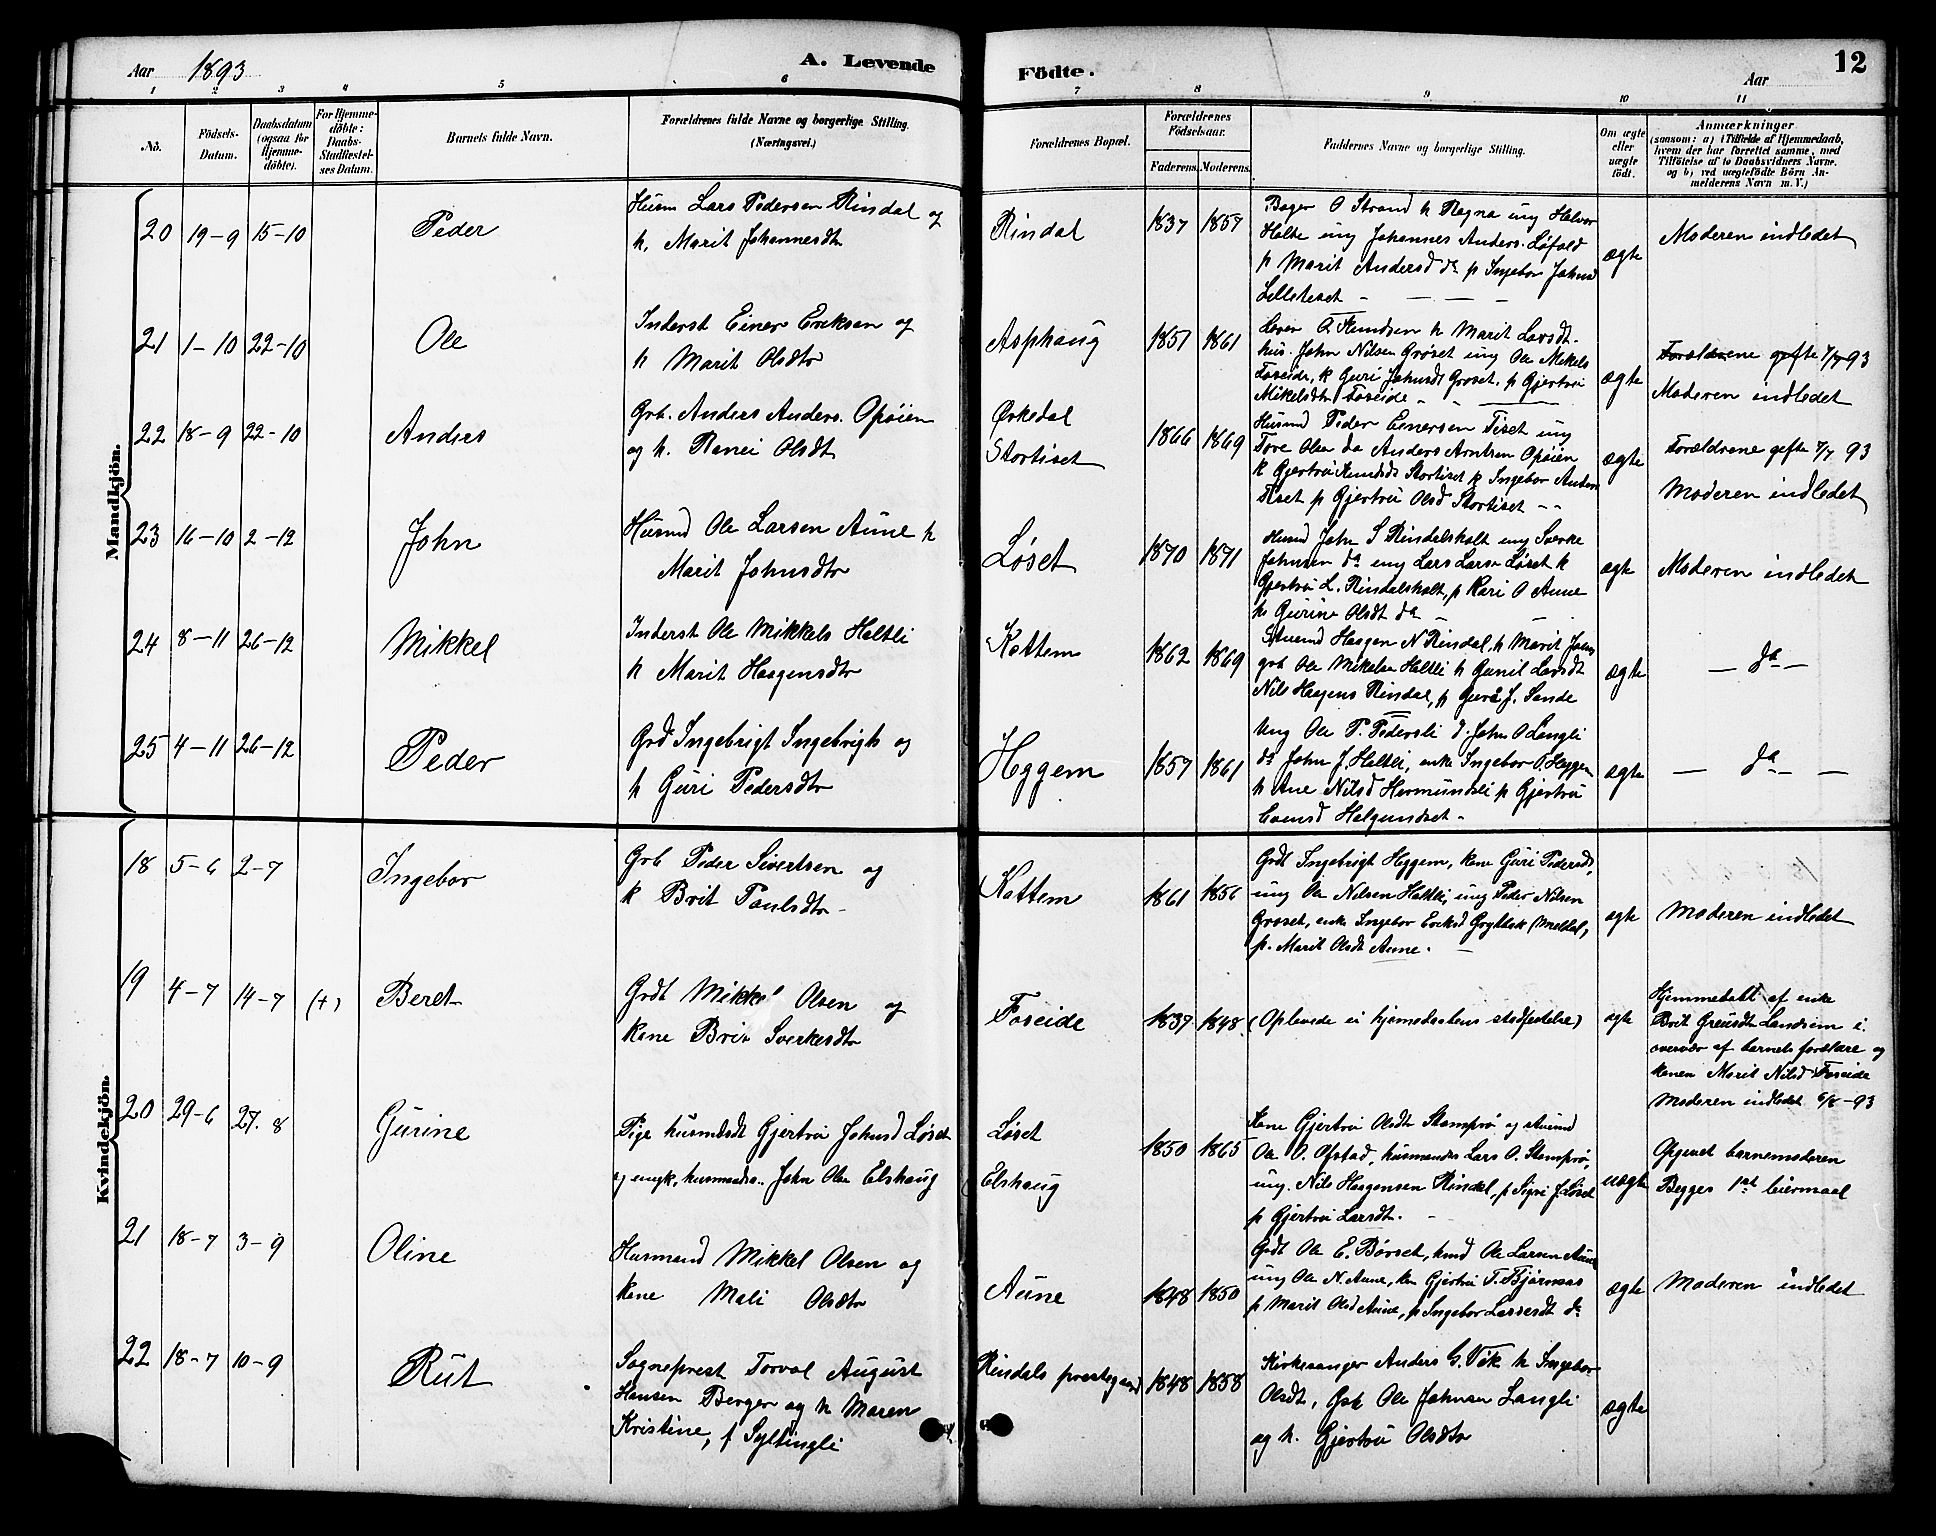 Aar 1893 A. Levende
1 2 3 4 5 6
No.
Födsels-
Datum.
Daabsdatum
(ogsaa for
Hjemme-
döbte).
For Hjemme-
döbte:
Daabs-
Stadfæstel-
ses Datum.
Barnets fulde Navn.
Forældrenes fulde Navne og borgerlige Stilling.
(Næringsvei.)
Mandkjön.
20 19-9 15-10 Peder Husm Lars Pedersen Rindal og
k, Marit Johannesdt
21 1-10 22-10 Ole Inderst Einer Eriksen og
k Marit Olsdtr
22 18-9 22-10 Anders Grb. Anders Anders. Opøien
og k. Ranei Olsdt
23 16-10 2-12 John Husmd Ole Larsen Aune k
Marit Johnsdtr
24 8-11 26-12 Mikkel Inderst Ole Mikkels Holtli
k Marit Haagensdtr
25 4-11 26-12 Peder Grd Ingebrigt Ingebrigts og
k Guri Pedersdtr
Kvindekjön.
18 5-6 2-7 Ingebor Grb Peder Sivertsen og
k Brit Paulsdtr
19 4-7 14-7 (+) Beret Grdt Mikkel Olsen og
kone Brit Sverkesdtr
20 29-6 27.8 Gurine Pige husmdsdt Gjertru Johnsd Løset
og ungk. husmandss. John Olsen Elshaug
21 18-7 3-9 Oline Husmand Mikkel Olsen og
kone Mali Olsdtr
22 18-7 10-9 Rut Sogneprest Torval August
Hansen Berger og k Maren
Kristine, f Syltingli
Födte. Aar 12
7 8 9 10 11
Forældrenes Bopæl.
Forældrenes
Födselsaar.
Faderens. Moderens.
Faddernes Navne og borgerlige Stilling.
Om ægte
eller
uægte
födt.
Anmærkninger
(saasom: a) i Tilfælde af Hjemmedaab,
hvem der har forrettet samme, med
Tilföielse af to Daabsvidners Navne.
og b) ved uægtefödte Börn An-
melderens Navn m. V.)
Rindal 1837 1857 Bager O Strand k Ragna ung Halvor
Holte ung Johannes Anders. Løfald
p Marit Andersd do p Ingebor Johnsd
Lilleteset
ægte Moderen indledet
Asphaug 1851 1861 Lærer O. Knudsen k Marit Larsdt.
hus. John Nilsen Grøset ung Ole Mikels
Foseide, k Guri Johnsdt Grøset, p Gjertru
Mikelsdtr Foseide
ægte Forældrene gefte 7/7 93
Moderen indledet
Ørkedal
Stortiset 1866 1869 Husmd Peder Einersen Tiset ung
Tore Olsen do Anders Arntsen Opøien
k Gjertru Knudsd Stortiset k Ingebor Anders
Tiset p Gjertru Olsd Stortiset
ægte Forældrene gefte 7/7 93
Moderen indledet
Løset 1870 1871 Husmd John S Rindalsholt ung Sverke
Johnsen do ung Lars Larsen Løset k
Gjertru L. Rindalsholt, p Kari O Aune
k Gurine Olsdt do
ægte Moderen indledet
Kattem 1862 1869 Haagen N Rindal, k Marit Johns
grb Ole Mikelsen Holtli k Gunil Larsdt
Nils Haagens Rindal, p Guru J. Sande
ægte - do -
Heggem 1857 1861 Ung Ole P. Pedersli d. John O Langli
do John J. Holtli, enke Ingebor O. Heggem
k Ane Nilsd Hermundsli p Gjertru
Evensd Helgundset
ægte - do -
Kattem 1861 1856 Grdt Ingebrigt Heggem, kone Guri Pedersdt,
ung Ole Nilsen Holtli, ung Peder Nilsen
Grøset, enke Ingebor Eriksd Grytbak (Meldal),
p. Marit Olsdt Aune.
ægte Moderen indledet
Foseide 1837 1848 (Oplevede ei hjemedaabens stadfestelse) ægte
Hjemmedøbt af enke
Brit Greusdt Landsem i
overvær af barnets forældre og
konen Marit Nilsd Foseide
Moderen indledet 6/8-93
Løset
Elshaug 1850 1865 Kone Gjertru Olsdt Stomprø og
Ole O. Øfstad, husmandss Lars O. Stomprø,
ung. Nils Haagensen Rindal, p Sigri J Løset
p Gjertru Larsdt.
uægte Opgivet barnemoderen
Begges 1ste leiermaal
Aune 1848 1850 Grdt Ole E. Børset, hmd Ole Larsen Aune
ung Ole N. Aune, kone Gjertru T. Bjørnaas
p Marit Olsd Aune, p Ingebor Larsesdt do
ægte Moderen indledet
Rindals prestegaard 1848 1858 Kirkesanger Anders G. Vik k Ingebor
Olsdt, Gbk Ole Johnsen Langli
og k. Gjertru Olsdtr
ægte